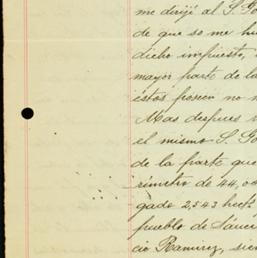 me dirijí al S. Go
de que so me hu
dicho impuesto,
mayor parte de la
estos poseen no m
Mas despues
el mismo S. Go
de la parte que
rímetro de 44,0
gado 2,543 hect
pueblo de Sauci
cio Ramirez, sie